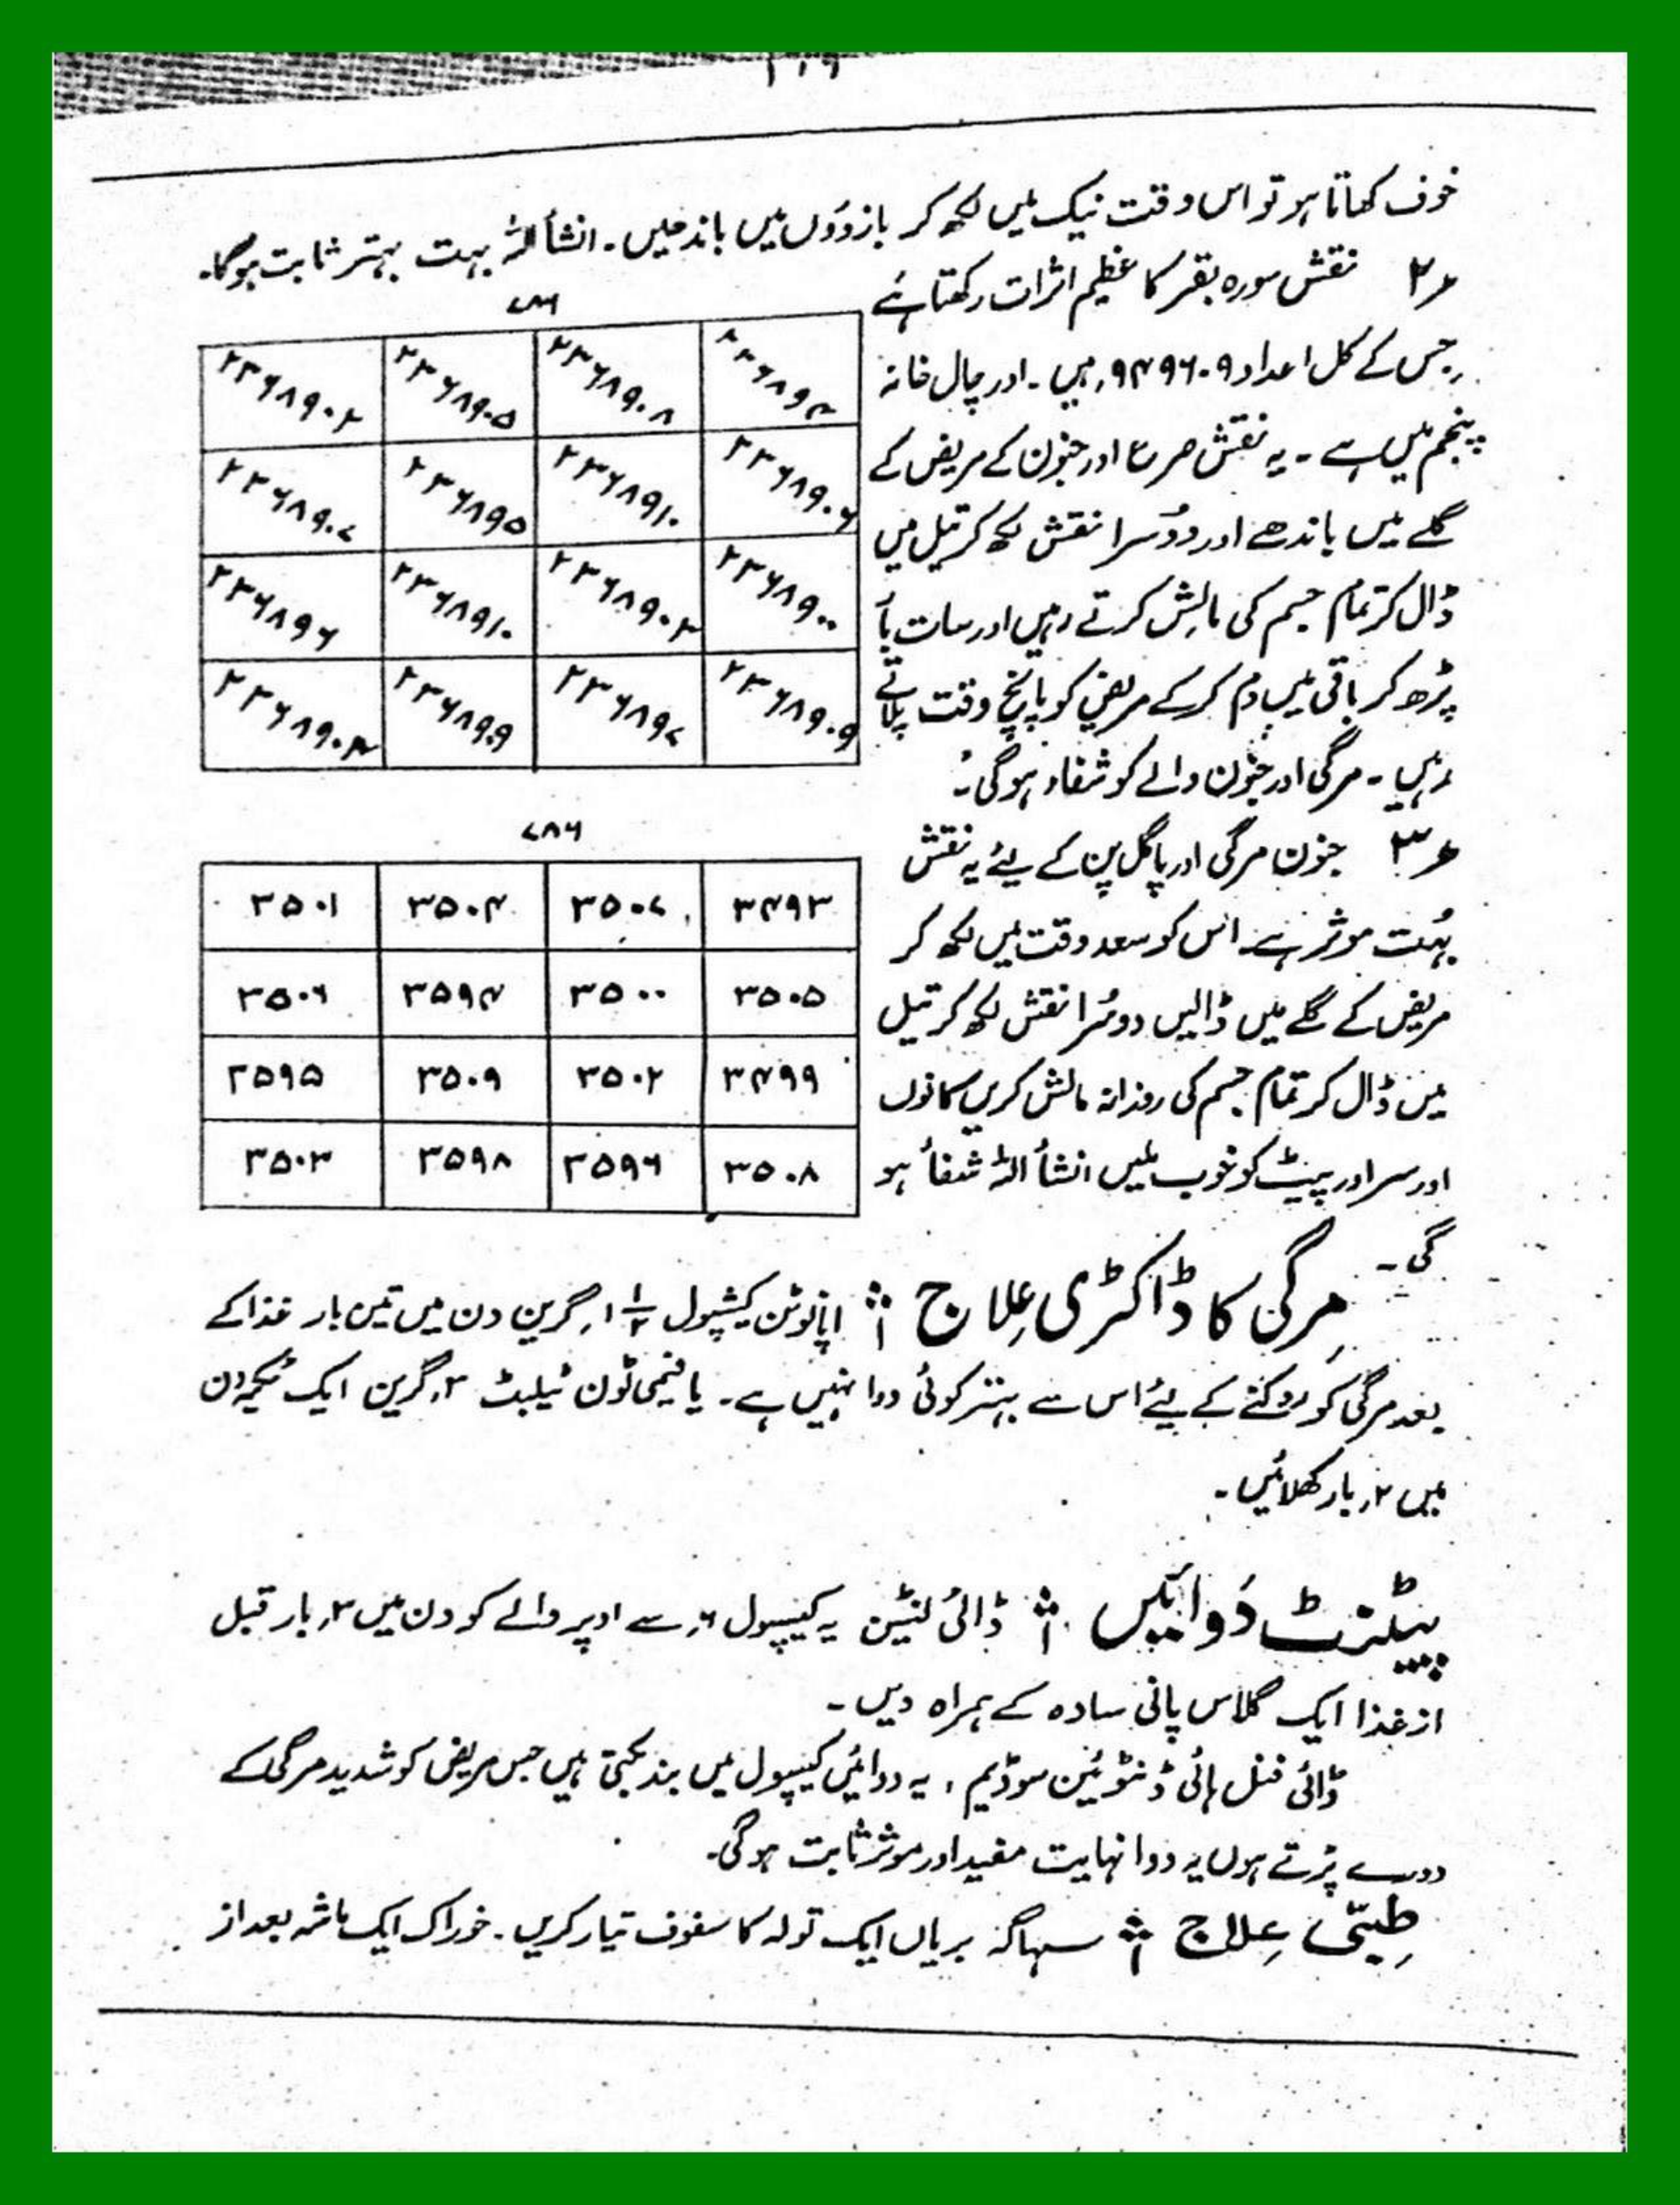 خوف کھاتا ہو تو اس وقت نیک میں لکھ کر بازوؤں میں باندھیں۔ انشأ اللہ بہت بہتر ثابت ہوگا۔
۲؍ نقش سورہ بقر کا عظیم اثرات رکھتا ہے
۷۸۶
جس کے کل اعداد ۹۴۷۵۶۰۹ ہیں۔ اور چال خانہ
پنجم میں ہے۔ یہ نقش صرع اور جنون کے مریض کے
گلے میں باندھے اور دوُسرا نقش لکھ کر تیل میں
ڈال کر تمام جسم کی مالش کرتے رہیں اور سات با
پڑھ کر باقی میں دم کرکے مریض کو پانچ وقت پلاتے
رہیں۔ مرگی اور جنون والے کو شفاء ہوگی۔
۲۳۶۸۹۰۲ ۲۳۶۸۹۰۵ ۲۳۶۸۹۰۸ ۲۳۶۸۹۴
۲۳۶۸۹۰۷ ۲۳۶۸۹۵ ۲۳۶۸۹۱۰ ۲۳۶۸۹۰۶
۲۳۶۸۹۶ ۲۳۶۸۹۱۰ ۲۳۶۸۹۰۳ ۲۳۶۸۹۰۰
۲۳۶۸۹۰۴ ۲۳۶۸۹۹ ۲۳۶۸۹۷ ۲۳۶۸۹۰۹
۳؍ جنون مرگی اور پاگل پن کے لیے یہ نقش
۷۸۶
بہُت موثر ہے۔ اس کو سعد وقت میں لکھ کر
مریض کے گلے میں ڈالیں دوسُرا نقش لکھ کر تیل
میں ڈال کر تمام جسم کی روزانہ مالش کریں کانوں
اور سر اور پیٹ کو خوب ملیں انشأ اللہ شفأ ہو
گی۔
۳۵۰۱ ۳۵۰۴ ۳۵۰۷ ۳۴۹۳
۳۵۰۶ ۳۵۹۴ ۳۵۰۰ ۳۵۰۵
۳۵۹۵ ۳۵۰۹ ۳۵۰۲ ۳۴۹۹
۳۵۰۳ ۳۵۹۸ ۳۵۹۶ ۳۵۰۸
مرگی کا ڈاکٹری عِلاج : کیشپول ۱ ۱/۲ گرین دن میں تین بار غذا کے
بعد مرگی کو روکنے کے لیے اس سے بہتر کوئی دوا نہیں ہے۔ یا ٹیلبٹ ۲؍گرین ایک ٹکیہ دن
میں ۲؍بار کھلائیں۔
پیٹنٹ دَوائیں : ڈائی لنٹین یہ کیپسول ۶؍ سے اوپر والے کو دن میں ۲؍بار قبل
از غذا ایک گلاس پانی سادہ کے ہمراہ دیں۔
ڈائی فنل ہائی ڈنٹوئین سوڈیم، یہ دوائیں کیپسول میں بند بکتی ہیں جس مریض کو شدید مرگی کے
دورے پڑتے ہوں یہ دوا نہایت مفید اور موثر ثابت ہوگی۔
طِبّی عِلاج : سہاگہ بریاں ایک تولہ کا سفوف تیار کریں۔ خوراک ایک ماشہ بعد از